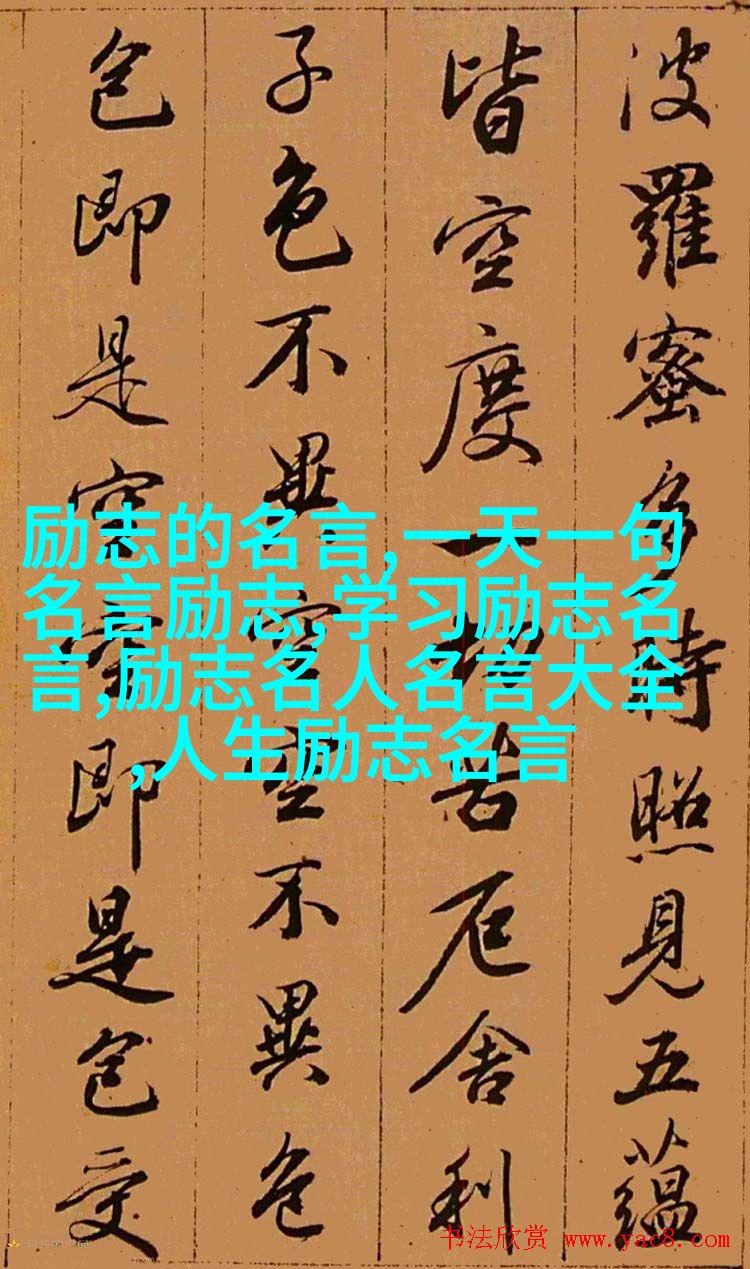 波羅蜜多時照見五蘊
皆空度一切苦厄舍利
子色不異空空不異色
色即是空空即是色受
励志的名言,一天一句
名言励志,学习励志名
言,励志名人名言大全
,人生励志名言
书法欣赏 www.yac8.com